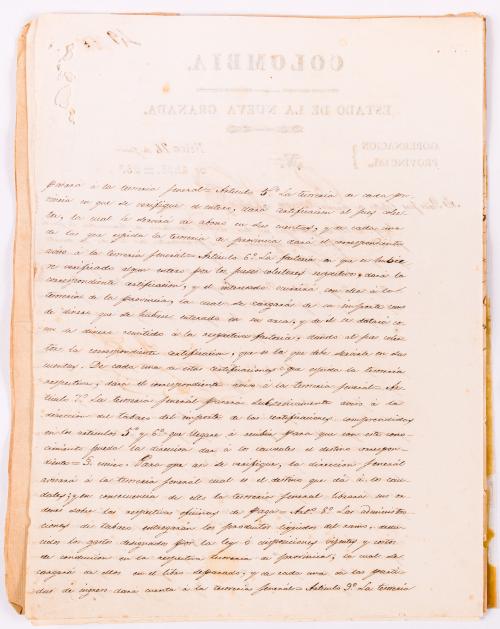 COLOMBIA.
ESTADO DE LA NUEVA GRANADA.
GOBERNACION
PROVINCIAL.
pasará à la tesoreria general = Articulo 5º La tesoreria de cada pro
vincia en que se verifique el entero, dará certificacion al juez colec
tor, la cual le servirá de abono en sus cuentas, y de cada una
de las que espida la tesoreria de provincia dará el correspondiente
aviso à la tesoreria general = Articulo 6º La factoria en que se hubiere
verificado algun entero por los jueces colectores respectivos, dará la
correspondiente certificacion, y el interesado ocurrirá con ella à la
tesoreria de la provincia, la cual se cargará de su importe como
de dinero que se hubiese enterado en su arca, y de él se datará co
mo de dinero remitido à la respectiva factoria, dando al juez colec
tor la correspondiente certificacion, que es la que debe servirle en sus
cuentas. De cada una de estas certificaciones que espida la tesoreria
respectiva, dará el correspondiente aviso à la tesoreria general. Ar
ticulo 7º La tesoreria general pasará subsecuivamente aviso à la
direccion del tabaco del importe de las certificaciones comprendidas
en los articulos 5º y 6º que llegare à recibir, para que con este cono-
cimiento pueda la direccion dar à los caudales el destino correspon
diente = S. unico. Para que asi se verifique, la direccion general
avisará à la tesoreria general cual es el destino que dá à los cau
dales; y en consecuencia de ello la tesoreria general librará sus or
denes sobre las respectivas oficinas de pago = Artº 8º Las administra
ciones de tabaco entregarán los productos liquidos del ramo, dedu
cidos los gastos designados por la ley ó disposiciones vigentes y costos
de conduccion en la respectiva tesoreria de provincia, la cual se
cargará de ellos en el libro separado, y de cada una de las parti
das de ingreso dará cuenta à la tesoreria general = Articulo 9º La tesoreria